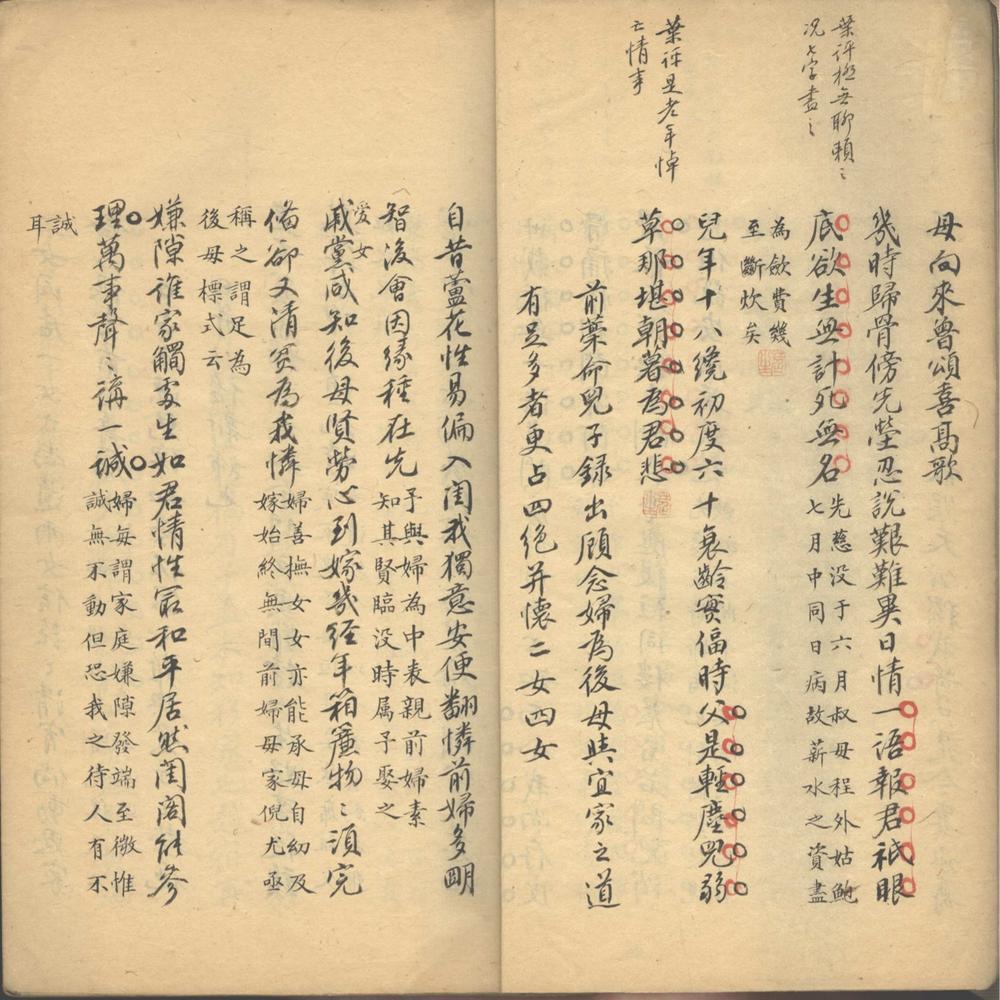 葉評極無聊賴之
況七字盡之
葉評是老年悼
亡情事
母向來魯頌喜高歌
幾時歸骨傍先塋忍說艱難異日情一語報君祇眼
底欲生無計死無名
先慈没于六月叔母程外姑鮑
七月中同日病故薪水之資盡
為斂費幾
至斷炊矣
兒年十八纔初度六十衰齡實偪時父是輕塵兒弱
草那堪朝暮為君悲
前葉命兒子錄出顧念婦為後母與宜家之道
有足多者更占四絕并懷二女四女
自昔蘆花性易偏入閨我獨意安便翻憐前婦多明
智後會因緣種在先
予與婦為中表親前婦素
知其賢臨没時属予娶之
愛女
戚黨咸知後母賢勞心到嫁幾經年箱簾物物須完
備卻又清貧為我憐
婦善撫女女亦能承母自幼及
嫁始終無間前婦母家倪尤亟
稱之謂足為
後母標式云
嫌隙誰家觸處生如君情性最和平居然閨閣能參
理萬事聲聲講一誠
婦每謂家庭嫌隙發端至微惟
誠無不動但恐我之待人有不
誠
耳